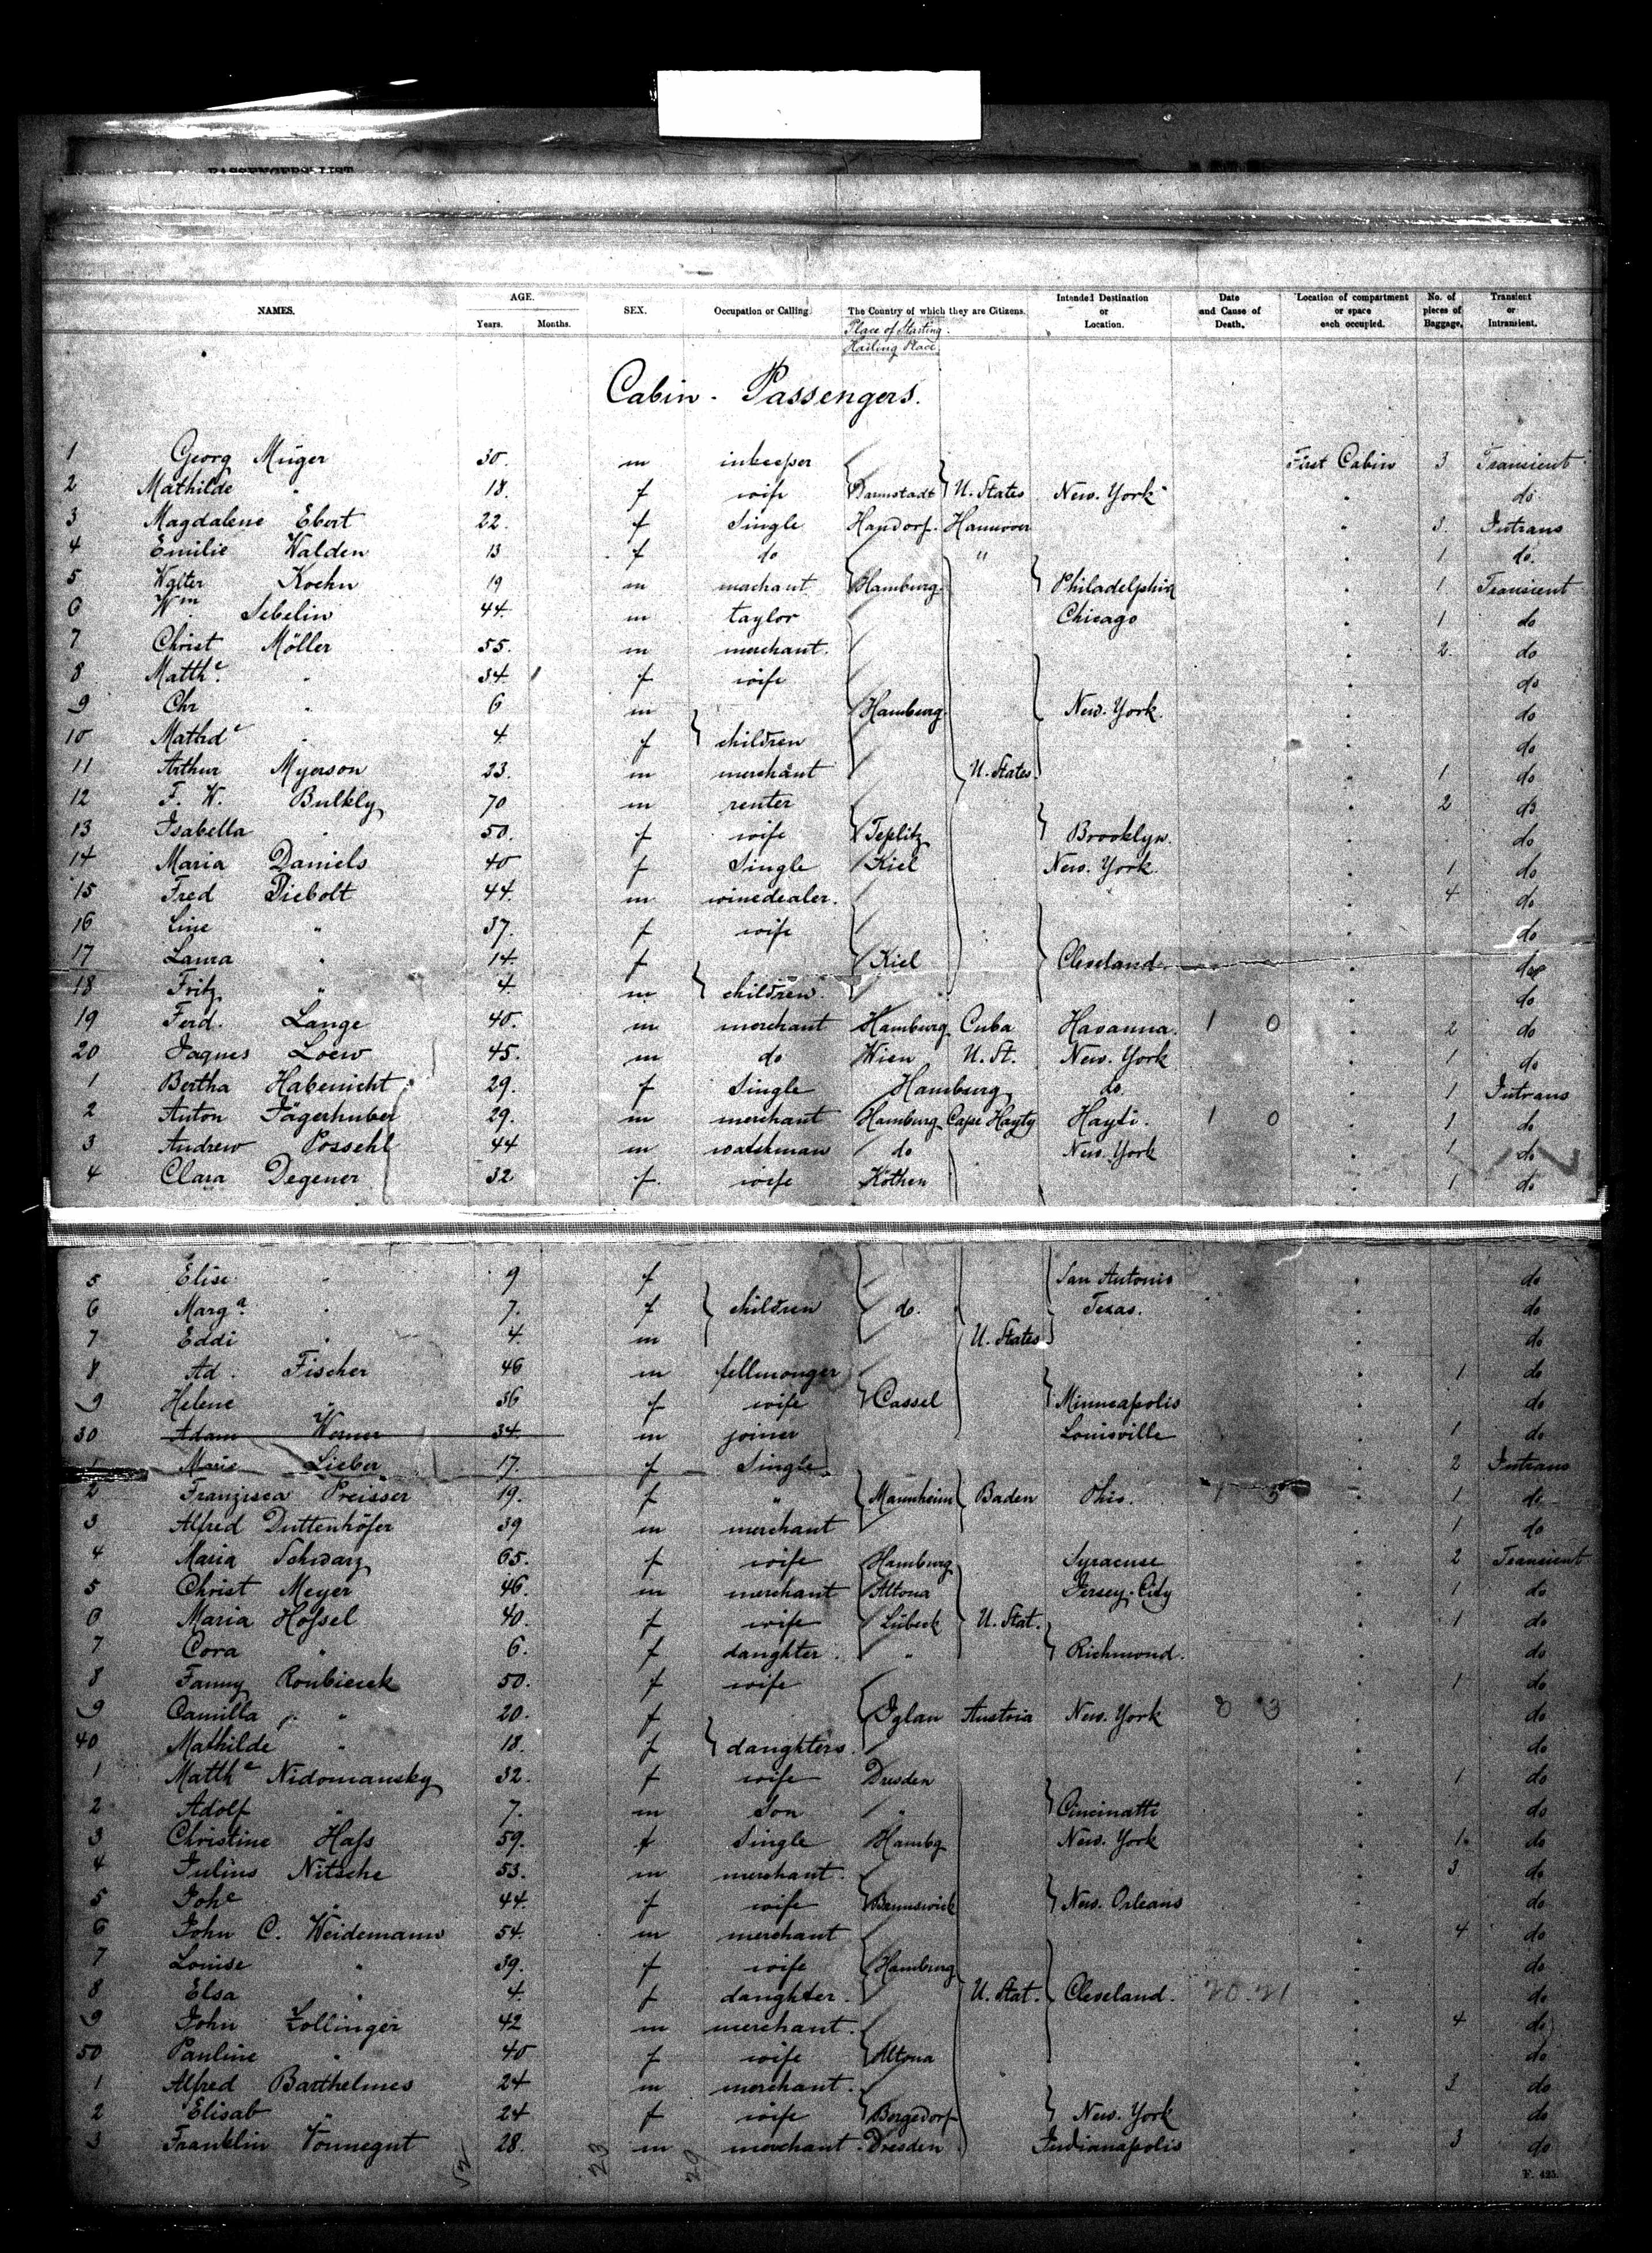 PASSENGERS' LIST
NAMES. AGE. Years. Months. SEX. Occupation or Calling. The Country of which they are Citizens. Intended Destination or Location. Date and Cause of Death. Location of compartment or space each occupied. No. of pieces of Baggage. Transient or Intransient.
Place of Starting.
Hailing Place
Cabin - Passengers.
1 Georg Müger 30. m inkeeper First Cabin 3 Transient
2 Mathilde " 18. f wife Darmstadt U. States New. York do
3 Magdalene Ebert 22. f Single Handorf Hannover " 3. Intrans
4 Emilie Walden 13 f do " 1 do.
5 Walter Koehn 19 m machant Hamburg Philadelphia 1 Transient
6 Wm Sebelin 44. m taylor Chicago 1 do
7 Christ Möller 55. m merchant. 2. do
8 Matthe " 34. f wife do
9 Chr " 6 m Hamburg. New. York. do
10 Mathde " 4. f children do
11 Arthur Myerson 23. m merchant U. States. 1 do
12 F. W. Bulkly 70 m renter 2 do
13 Isabella " 50. f wife Teplitz Brooklyn. do
14 Maria Daniels 40 f Single Kiel New. York. 1 do
15 Fred Diebolt 44. m winedealer. 4 do
16 Line " 37. f wife do
17 Laura " 14. f Kiel Cleveland do
18 Fritz " 4. m children. do
19 Ferd. Lange 40. m merchant Hamburg Cuba Havanna. 1 0 2 do
20 Jaques Loew 45. m do Wien U. St. New. York 1 do
1 Bertha Habenicht 29. f Single Hamburg do. 1 Intrans
2 Anton Jägerhuber 29. m merchant Hamburg Cape Hayty Hayti. 1 0 1 do
3 Andrew Possehl 44 m watchman do New. York 1 do
4 Clara Degener 32 f. wife Köthen 1 do
5 Elise " 9 f San Antonio do
6 Marga " 7. f children do. Texas. do
7 Eddi " 4. m U. States do
8 Ad. Fischer 46 m fellmonger 1 do
9 Helene " 36 f wife Cassel Minneapolis do
30 Adam Werner 34. m joiner Louisville 1 do
1 Marie Lieber 17. f Single 2 Intrans
2 Franzisca Preisser 19. f " Mannheim Baden Ohio. 1 5 1 do
3 Alfred Duttenhöfer 39 m merchant 1 do
4 Maria Schwarz 65. f wife Hamburg Syracuse 2 Transient
5 Christ Meyer 46. m merchant Altona Jersey. City 1 do
6 Maria Hofsel 40. f wife Lübeck U. Stat. 1 do
7 Cora " 6. f daughter. " Richmond. do
8 Fanny Roubicek 50. f wife 1 do
9 Camilla " 20. f Iglau Austria New. York 8 3 do
40 Mathilde " 18. f daughters. do
1 Matthe Nidomansky 32. f wife Dresden 1 do
2 Adolf " 7. m Son " Cincinatti do
3 Christine Hafs 59. f Single Hambg New. York 1. do
4 Julius Nitsche 53. m merchant. 3 do
5 Johe " 44. f wife Braunswick New. Orleans do
6 John C. Weidemann 54. m merchant 4 do
7 Louise " 39. f wife Hamburg do
8 Elsa " 4. f daughter. U. Stat. Cleveland. 20.21 do
9 John Zollinger 42 m merchant. 4 do
50 Pauline " 40 f wife Altona do
1 Alfred Barthelmes 24 m merchant. 3 do
2 Elisab " 24 f wife Bergedorf New. York do
3 Franklin Vonnegut 28. m merchant. Dresden Indianapolis 3 do
52 23 29
F. 425.